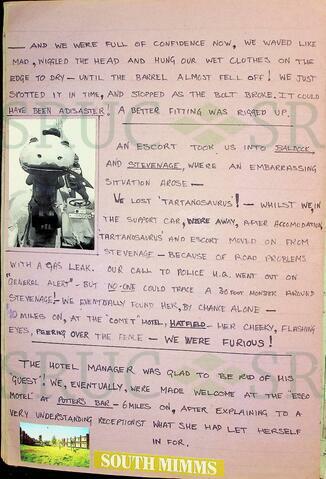 — AND WE WERE FULL OF CONFIDENCE NOW, WE WAVED LIKE
MAD, WIGGLED THE HEAD AND HUNG OUR WET CLOTHES ON THE
EDGE TO DRY — UNTIL THE BARREL ALMOST FELL OFF! WE JUST
SPOTTED IT IN TIME, AND STOPPED AS THE BOLT BROKE. IT COULD
HAVE BEEN A DISASTER. A BETTER FITTING WAS RIGGED UP.
AN ESCORT TOOK US INTO BALDOCK
AND STEVENAGE, WHERE AN EMBARRASSING
SITUATION AROSE —
WE LOST 'TARTANOSAURUS'! — WHILST WE, IN
THE SUPPORT CAR, WERE AWAY, AFTER ACCOMODATION,
'TARTANOSAURUS' AND ESCORT MOVED ON FROM
STEVENAGE — BECAUSE OF ROAD PROBLEMS
WITH A GAS LEAK. OUR CALL TO POLICE H.Q. WENT OUT ON
"GENERAL ALERT" - BUT NO-ONE COULD TRACE A 30 FOOT MONSTER AROUND
STEVENAGE! — WE EVENTUALLY FOUND HER, BY CHANCE ALONE —
10 MILES ON, AT THE "COMET" HOTEL, HATFIELD — HER CHEEKY, FLASHING
EYES, PEERING OVER THE FENCE — WE WERE FURIOUS!
THE HOTEL MANAGER WAS GLAD TO BE RID OF HIS
"GUEST". WE, EVENTUALLY, WERE MADE WELCOME AT THE "ESSO
MOTEL" AT POTTERS BAR — 6 MILES ON, AFTER EXPLAINING TO A
VERY UNDERSTANDING RECEPTIONIST WHAT SHE HAD LET HERSELF
IN FOR.
SOUTH MIMMS